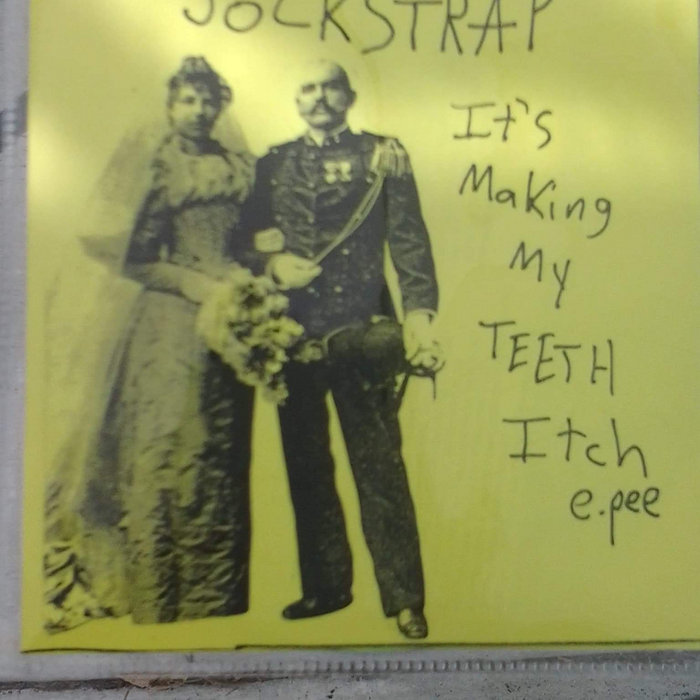 JOCKSTRAP
It's
Making
My
TEETH
Itch
e.pee